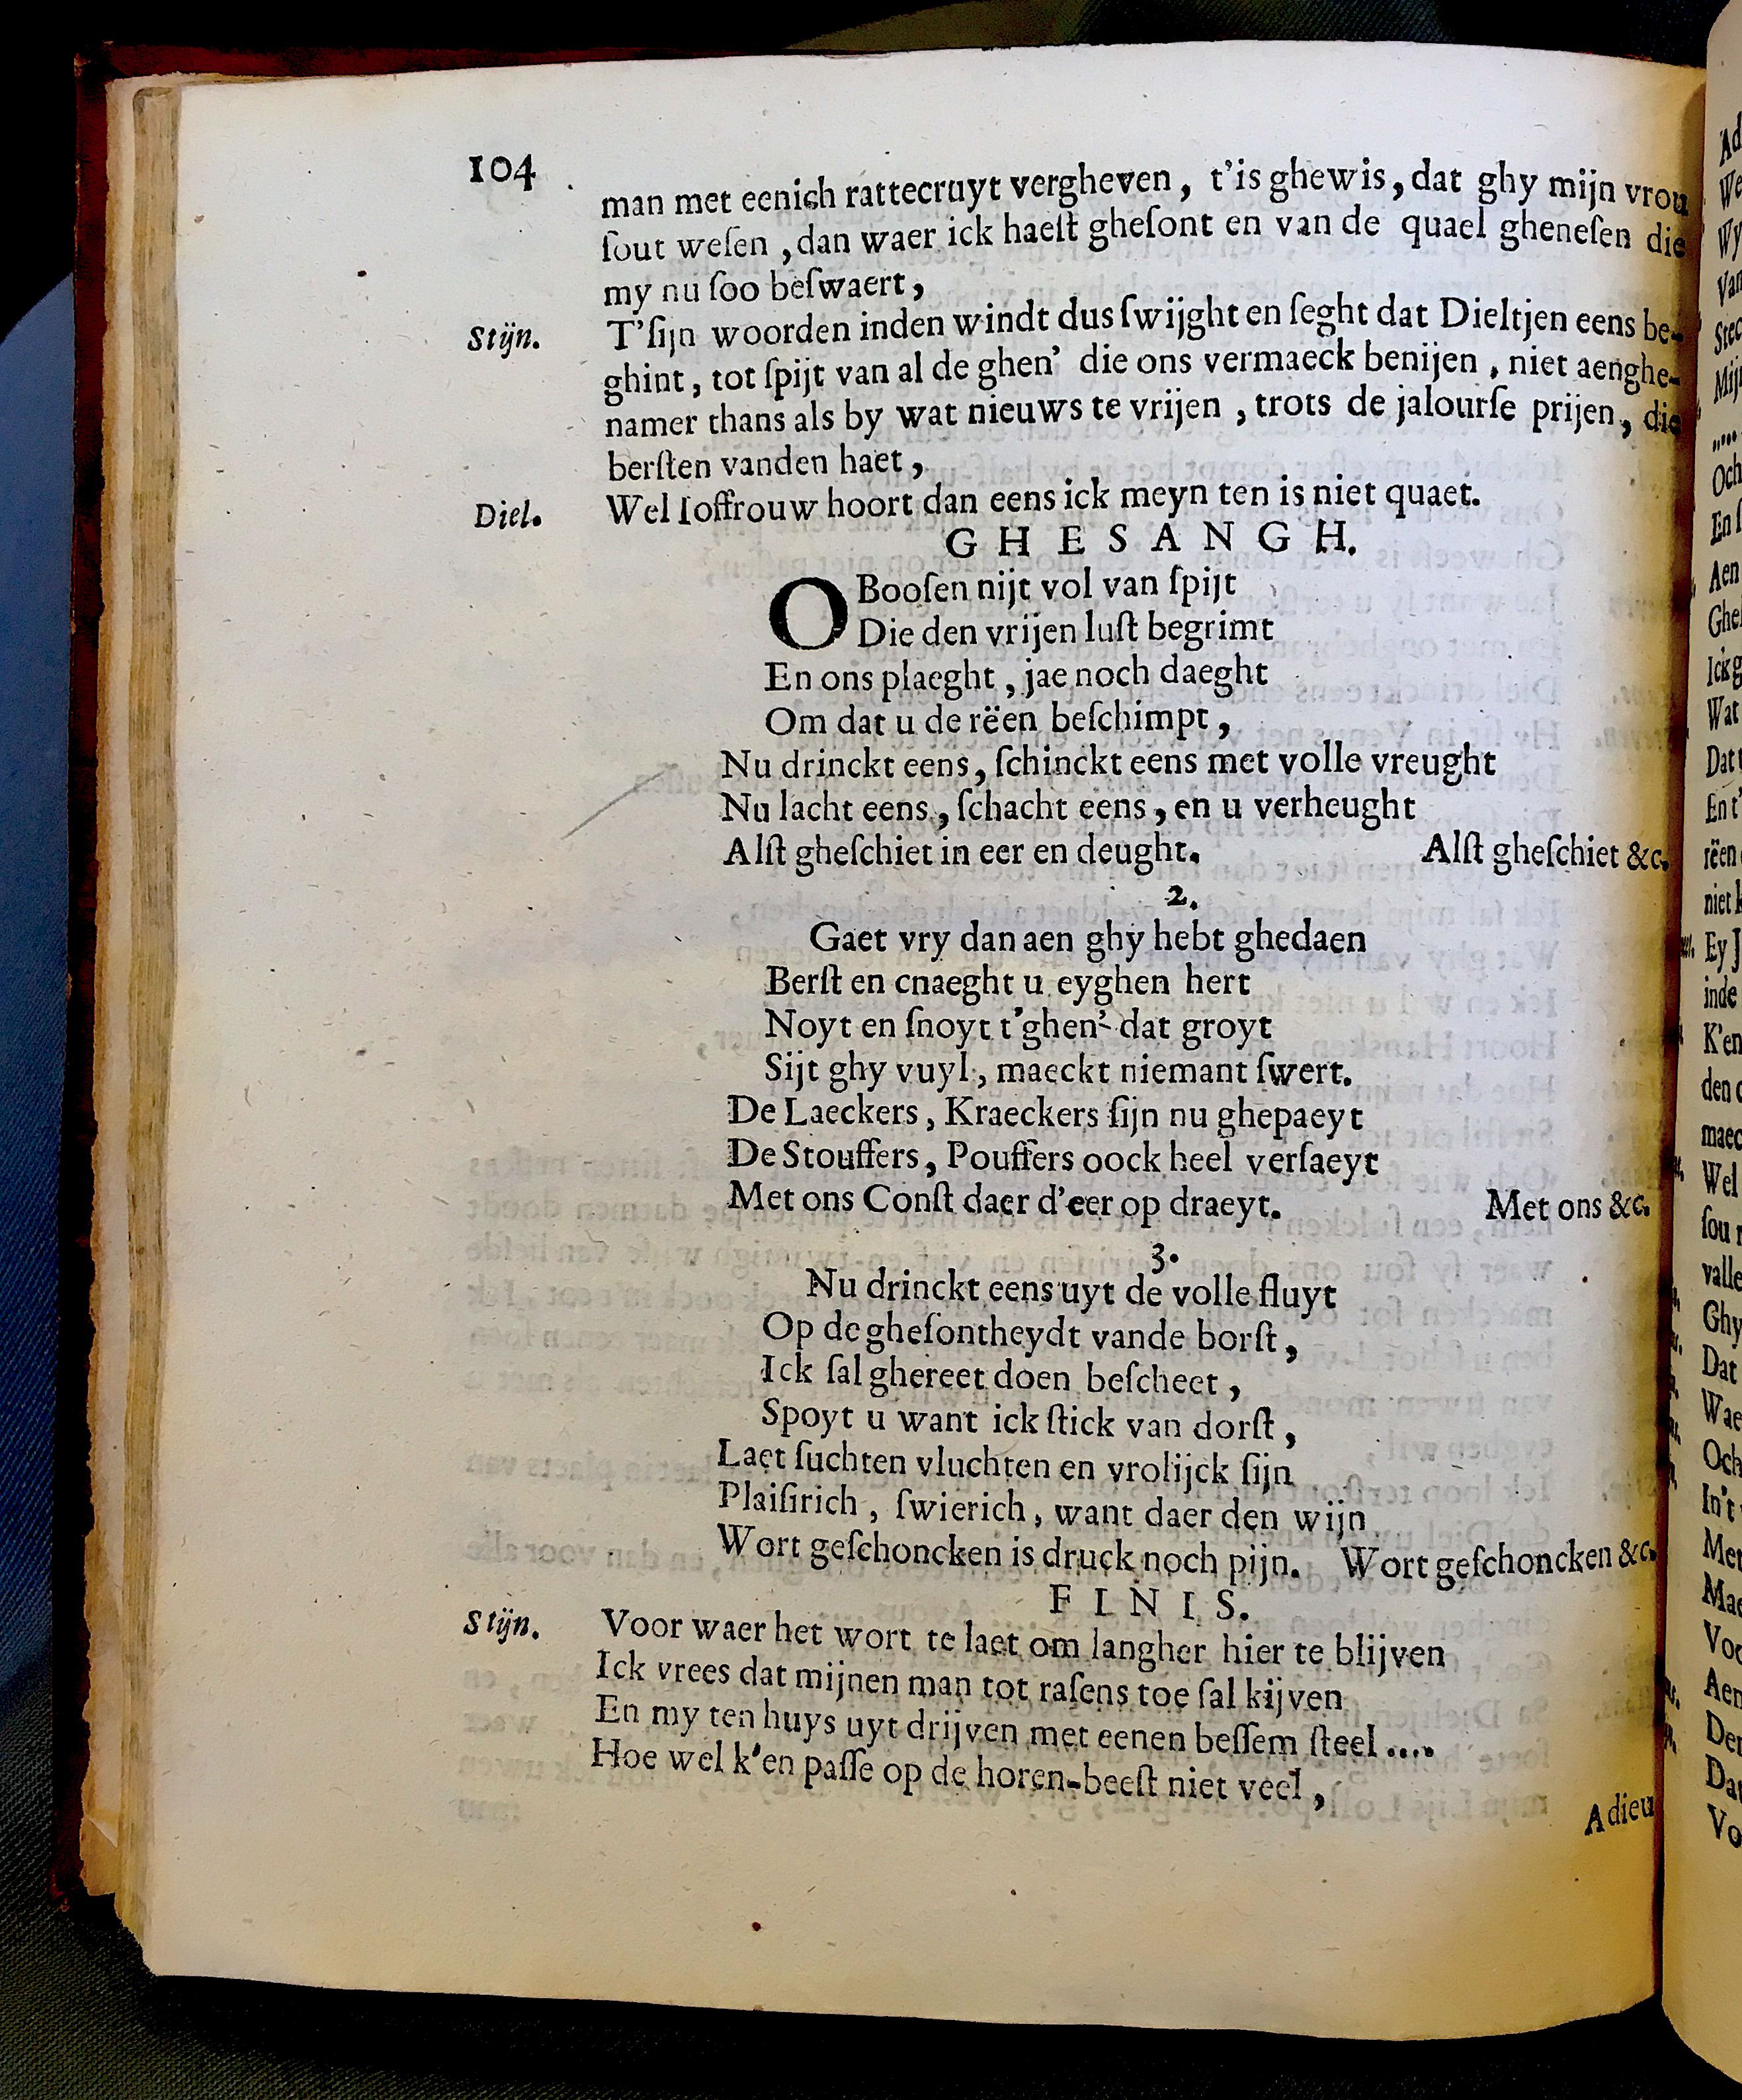 104
man met eenich rattecruyt vergheven, t'is ghewis, dat ghy mijn vrou
ſout weſen, dan waer ick haeſt gheſont en van de quael gheneſen die
my nu ſoo beſwaert,
Stijn. T'ſijn woorden inden windt dus ſwijght en ſeght dat Dieltjen eens be-
ghint, tot ſpijt van al de ghen' die ons vermaeck benijen, niet aenghe-
namer thans als by wat nieuws te vrijen, trots de jalourſe prijen, die
berſten vanden haet,
Diel. Wel Ioffrouw hoort dan eens ick meyn ten is niet quaet.
GHESANGH.
O Booſen nijt vol van ſpijt
Die den vrijen luſt begrimt
En ons plaeght, jae noch daeght
Om dat u de rëen beſchimpt,
Nu drinckt eens, ſchinckt eens met volle vreught
Nu lacht eens, ſchacht eens, en u verheught
Alſt gheſchiet in eer en deught. Alſt gheſchiet &c.
2.
Gaet vry dan aen ghy hebt ghedaen
Berſt en cnaeght u eyghen hert
Noyt en ſnoyt t'ghen' dat groyt
Sijt ghy vuyl, maeckt niemant ſwert.
De Laeckers, Kraeckers ſijn nu ghepaeyt
De Stouffers, Pouffers oock heel verſaeyt
Met ons Conſt daer d'eer op draeyt. Met ons &c.
3.
Nu drinckt eens uyt de volle fluyt
Op de gheſontheydt vande borſt,
Ick ſal ghereet doen beſcheet,
Spoyt u want ick ſtick van dorſt,
Laet ſuchten vluchten en vrolijck ſijn
Plaiſirich, ſwierich, want daer den wijn
Wort geſchoncken is druck noch pijn. Wort geſchoncken &c.
FINIS.
Stijn. Voor waer het wort te laet om langher hier te blijven
Ick vrees dat mijnen man tot raſens toe ſal kijven
En my ten huys uyt drijven met eenen beſſem ſteel....
Hoe wel k'en paſſe op de horen-beeſt niet veel,
Adieu